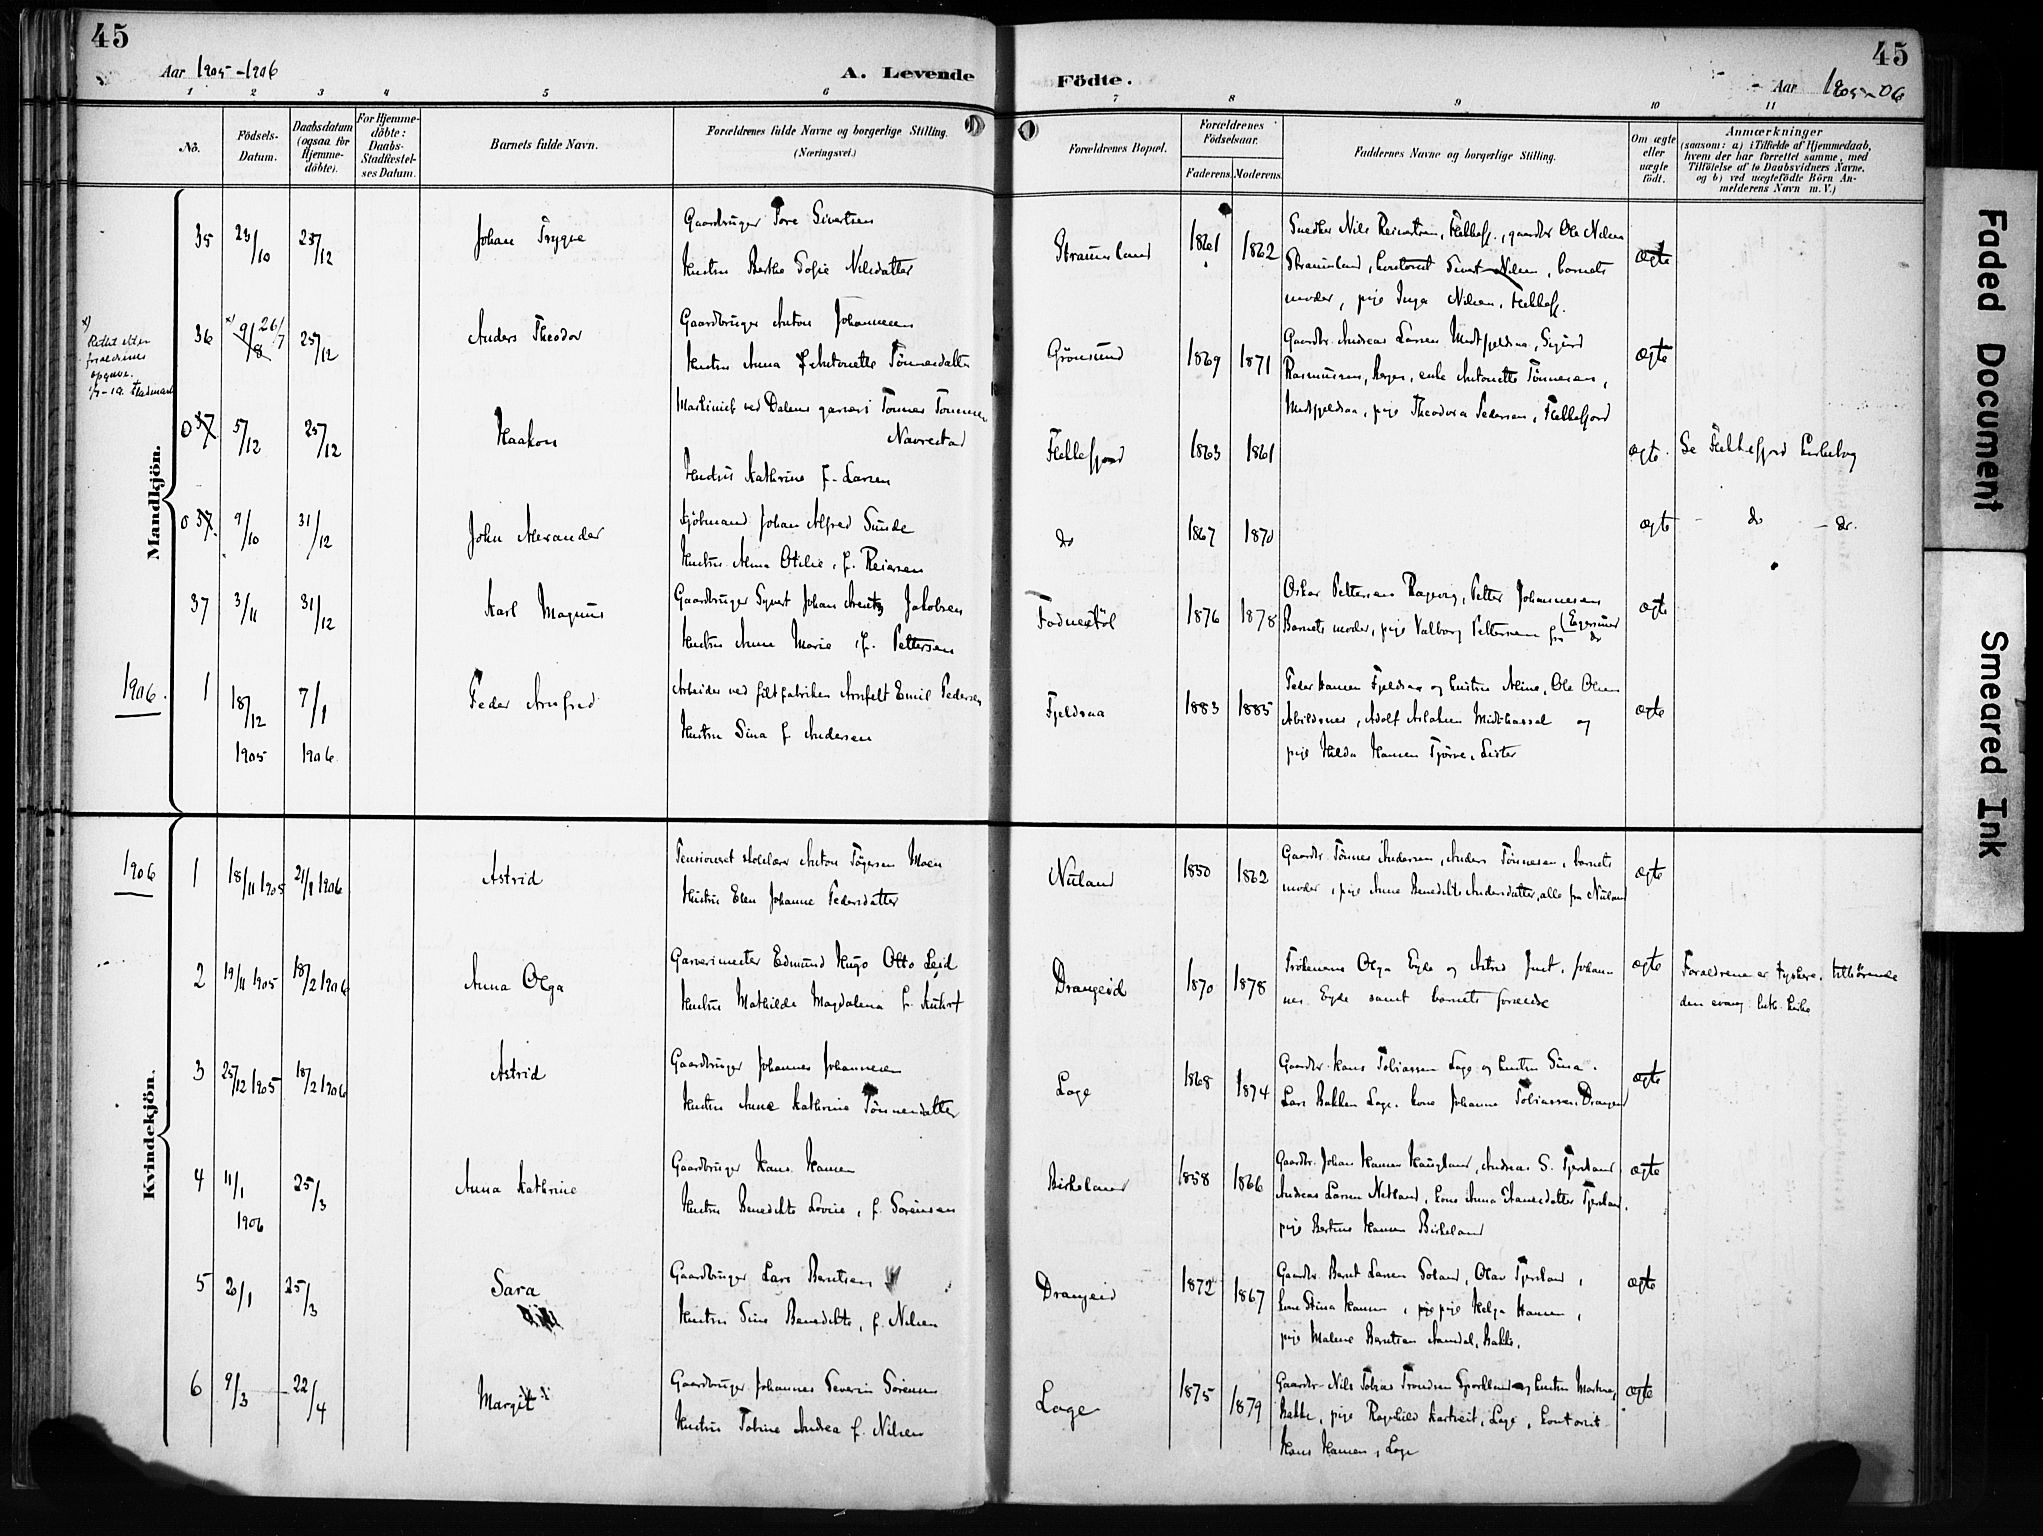 45
Aar 1905-1906
A. Levende
Födte.
45
Aar 1905-06
1 2 3 4 5 6 7 8 9 10 11
No.
Födsels-Datum.
Daabsdatum (ogsaa for Hjemme-döbte).
For Hjemme-döbte: Daabs-Stadfæstel-ses Datum.
Barnets fulde Navn.
Forældrenes fulde Navne og borgerlige Stilling.
(Næringsvei.)
Forældrenes Bopæl.
Forældrenes Födselsaar.
Faderens Moderens
Faddernes Navne og borgerlige Stilling.
Om ægte eller uægte födt.
Anmærkninger
(saasom: a) i Tilfælde af Hjemmedaab,
hvem der har forrettet samme, med
Tilföielse af to Daabsvidners Navne,
og b) ved uægtefödte Börn An-
melderens Navn m. V.)
Mandkjön.
35 23/10 23/12 Johan Trygve
Gaardbruger Tore Sivertsen
Hustru Berthe Sofie Nilsdatter
Straumland 1861 1862
Snedker Nils Reinertsen, Flekkefj., gaardbr Ole Nilsen
Straumland, Sivert Nilsen, barnets
moder, pige Inga Nilsen, Flekkefj.
ægte
x)
Rettet efter
forældrenes
opgave.
36 x) 9/8 26/7 25/12 Anders Theodor
Gaardbruger Anton Johannesen
Hustru Anna Antonette Tønnesdatter
Grønsund 1869 1871
Gaardbr. Andreas Larsen Midtfjeldsaa, Sigurd
Rasmussen, enke Antonette Tønnesen,
Midtfjeldsaa, pige Theodora Pedersen, Flekkefjord
ægte
0 37 5/12 25/12 Haakon
Maskinist ved Dalens garveri Tønnes Tønnesen
Navrestad
Hustru Kathrine f. Larsen
Flekkefjord 1863 1861
ægte. Se Flekkefjord kirkebog
0 37. 9/10 31/12 John Alexander
Sjømand Johan Alfred Sunde
Hustru Alma Otilie, f. Reiersen
do 1867 1870
ægte - do - do.
37 3/11 31/12 Karl Magnus
Gaardbruger Syvert Johan Arentz Jakobsen
Hustru Anne Marie, f. Pettersen
Fodnestøl 1876 1878
Oskar Pettersen Rægevig, Petter Johannesen
Barnets moder, pige Valborg Pettersen fra (Egersund do
ægte
1906. 1 18/12 1905 7/1 1906 Peder Arnfred
Arbeider ved filtfabriken Arnfelt Emil Pedersen
Hustru Sina f. Andersen
Fjeldsaa 1883 1885
Peder Hansen Fjeldsaa og hustru Aline, Ole Olsen
Abildsnes, Adolf Aslaksen Midthassel og
pige Hilda Hansen Tjørve, Lister
ægte
Kvindekjön.
1906 1 18/11 1905 21/1 1906 Astrid
Pensioneret skolelærer Anton Tøgersen Moen
Hustru Elen Johanne Pedersdatter
Nuland 1850 1862
Gaardbr. Tønnes Andersen, Anders Tønnesen, barnets
moder, pige Anne Benedikte Andersdatter, alle fra Nuland
ægte
2 19/11 1905 18/2 1906 Anna Olga
Garverimester Edmund Hugo Otto Leid
Hustru Mathilde Magdalena f.
Drangeid 1870 1878
Frøknerne Olga Eyde og Astrid Juel. Johan-
nes Eyde samt barnets forældre
ægte
Forældrene er tyskere, tilhørende
den evang. luth. kirke
3 25/12 1905 18/2 1906 Astrid
Gaardbruger Johannes Johannesen
Hustru Anne Kathrine Tønnesdatter
Loge 1868 1874
Gaardbr. Hans Tobiassen Loge og hustru Sina.
Lars Bakken Loge. kone Johanne Tobiassen Drangeid
ægte
4 11/1 1906 25/3 Anna Kathrine
Gaardbruger Hans Hansen
Hustru Benedikte Lovise, f. Sørensen
Birkeland 1858 1866
Gaardbr. Johan Hansen Haugland, Andreas S. Tjersland
Andreas Larsen Netland, kone Anna Hansdatter Tjersland.
pige Bertine Hansen Birkeland
ægte
5 20/1 25/3 Sara
Gaardbruger Lars Berntsen
Hustru Sine Benedikte, f. Nilsen
Drangeid 1872 1867
Gaardbr. Bernt Larsen Soland, Olav Tjersland,
kone Stina Hansen, pige Helga Hansen,
pige Malene Berntsen Aamdal, Bakke.
ægte
6 9/3 22/4 Margit
Gaardbruger Johannes Severin Sørensen
Hustru Tobine Andrea f. Nilsen
Loge 1875 1879
Gaardbr. Nils Tobias Trondsen og hustru Martine,
Bakke, pige Ragnhild Hartveit, Loge, kontorist
Hans Hansen, Loge
ægte
Faded Document
Smeared Ink